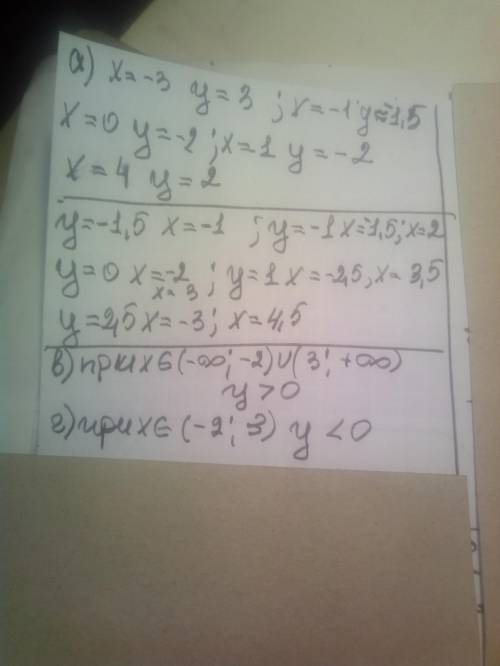 а) x=-3 y=3 ; x=-1 y=-1,5
x=0 y=-2 ; x=1 y=-2
x=4 y=2
y=-1,5 x=-1 ; y=-1 x=-1,5; x=2
y=0 x=-2 ; y=1 x=-2,5, x=3,5
x=3
y=2,5 x=-3; x=4,5
в) при x∈(-∞; -2)∪(3; +∞)
y>0
г) при x∈ (-2; 3) y <0